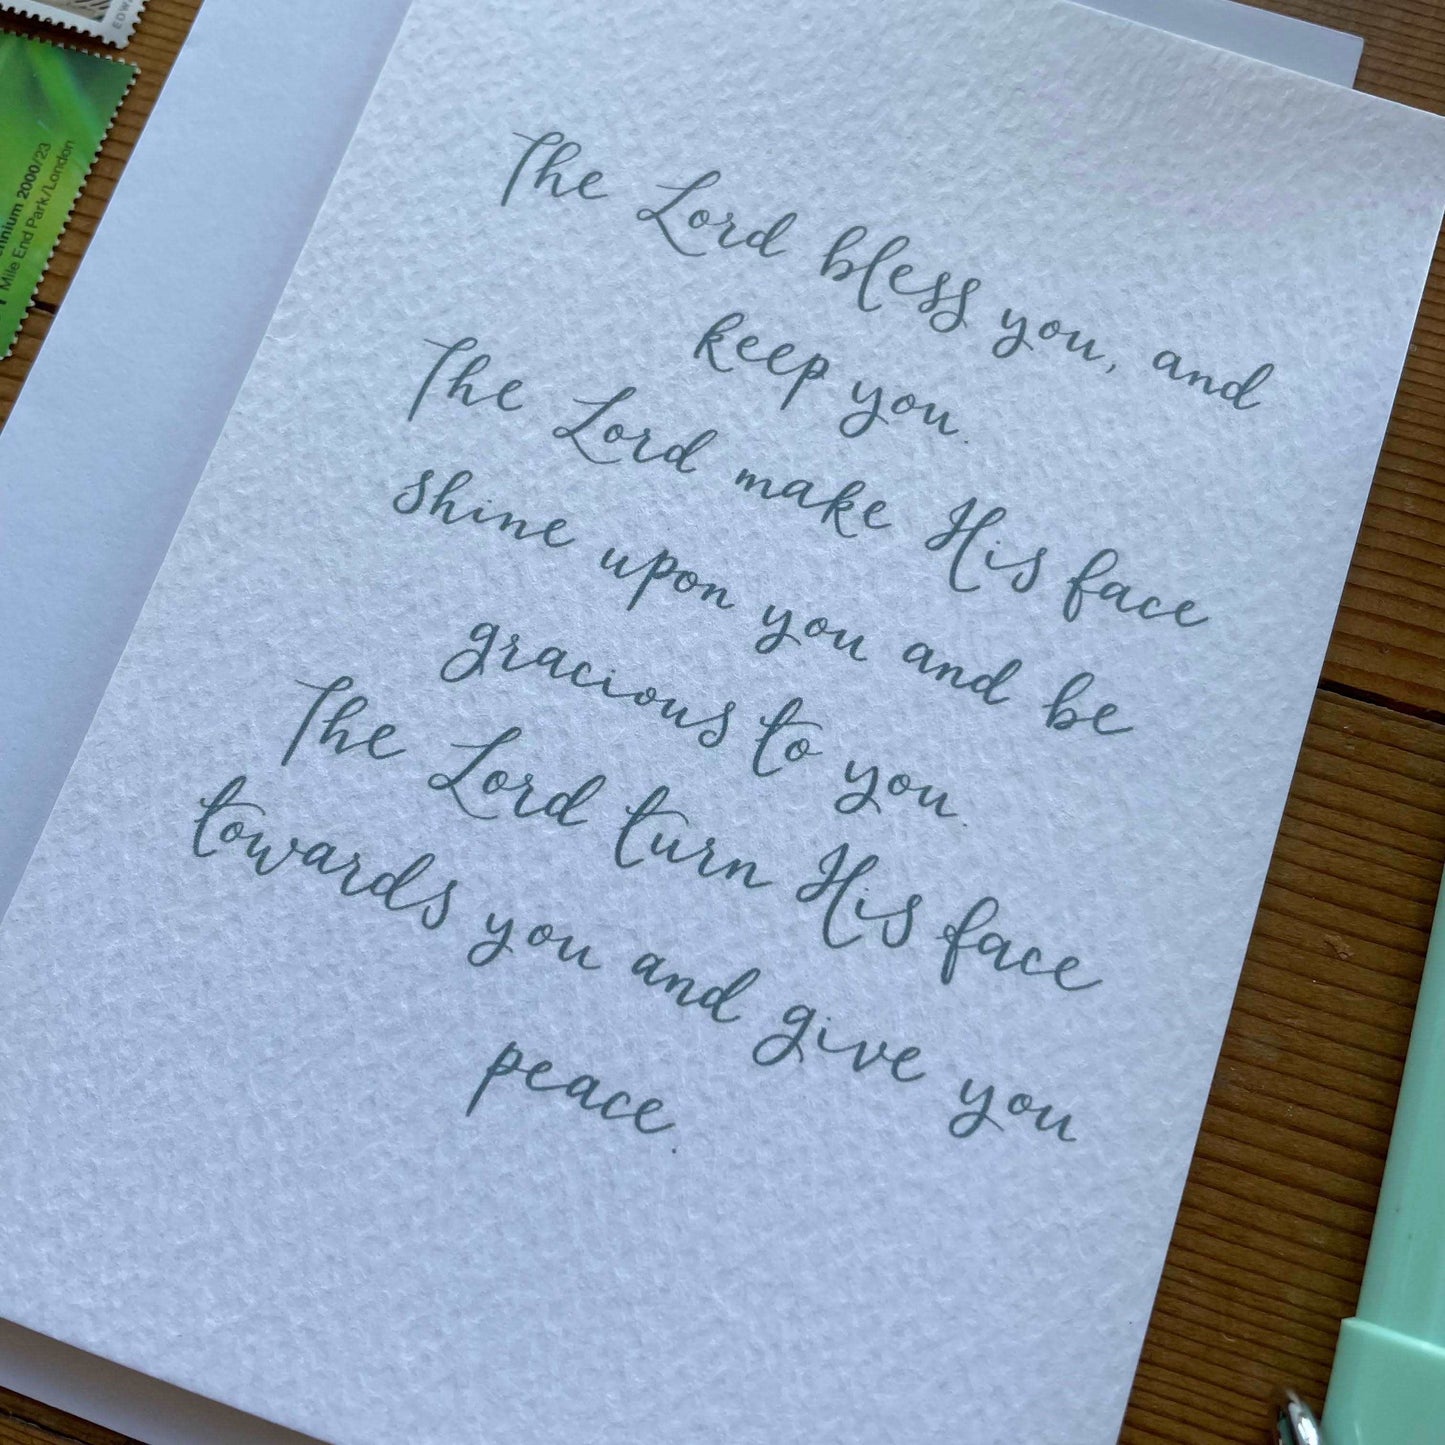 EDW
ennium 2000/23
Mile End Park/London
The Lord bless you, and
keep you.
The Lord make His face
shine upon you and be
gracious to you.
The Lord turn His face
towards you and give you
peace.